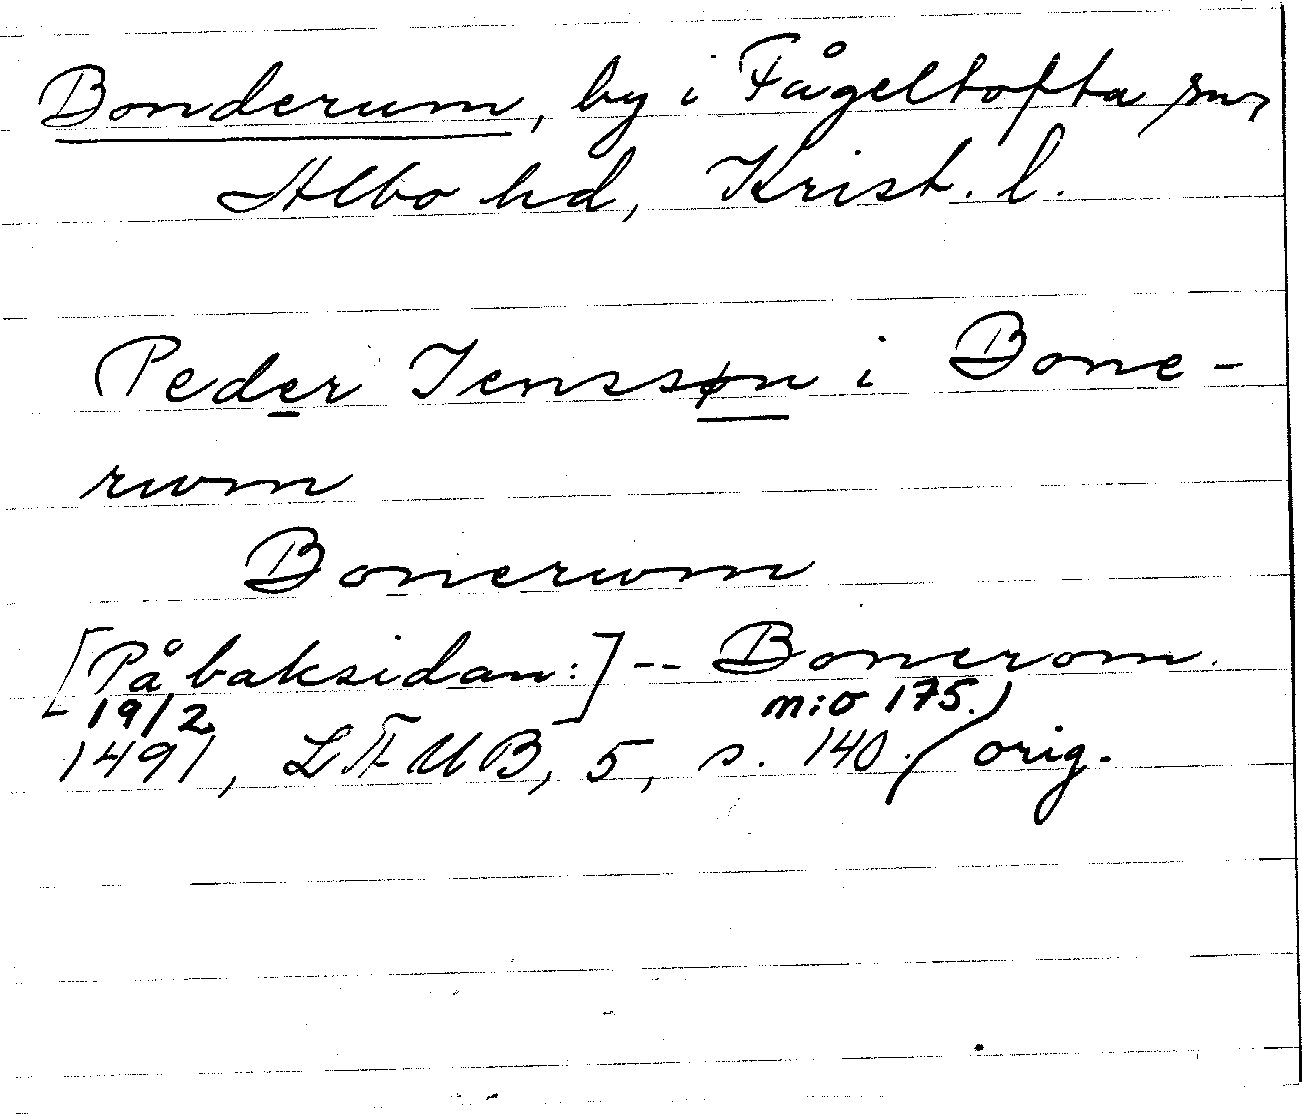 Bonderum, by i Fågeltofta sn,
Albo hd, Krist. l.
Peder Ienssøn i Bone-
rum
Bonerum
[På baksidan:] -- Bonerom.
19/2 m:o 175.)
1491, LÆUB, 5, s. 140. / orig.